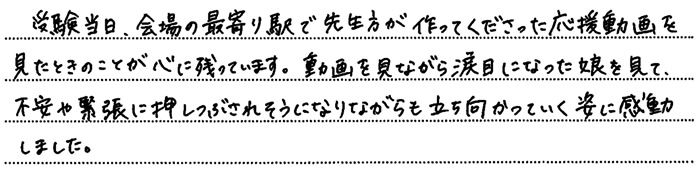 受験当日、会場の最寄り駅で先生方が作ってくださった応援動画を
見たときのことが心に残っています。動画を見ながら涙目になった娘を見て、
不安や緊張に押しつぶされそうになりながらも立ち向かっていく姿に感動
しました。